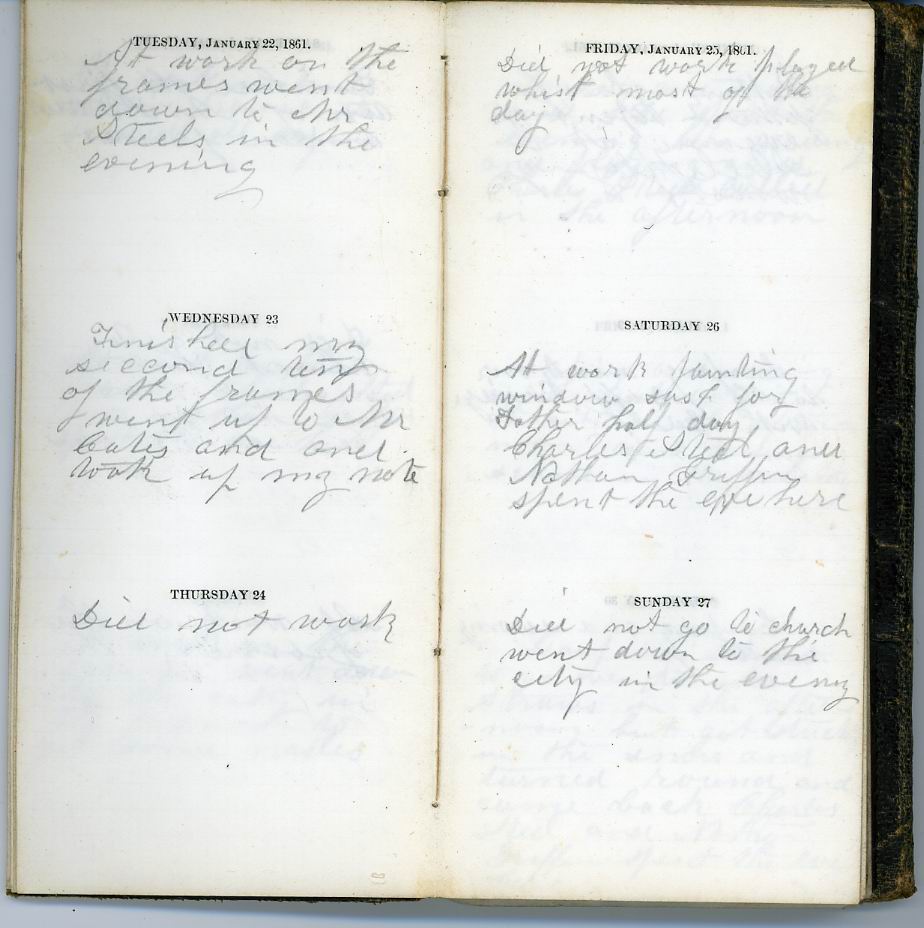 TUESDAY, JANUARY 22, 1861.
At work on the
frames went
down to Mr
Steels in the
evening
WEDNESDAY 23
Finished my
seccond
of the frames
went up to Mr
Cates and and
took up my note
THURSDAY 24
Did not work
FRIDAY, JANUARY 25, 1861.
Did not work played
whist most of the
day
in the afternoon
SATURDAY 26
At work painting
window sash for
Father half day
Charles Steel and
Nathan Griffin
spent the eve here
SUNDAY 27
Did not go to church
went down to the
city in the evening